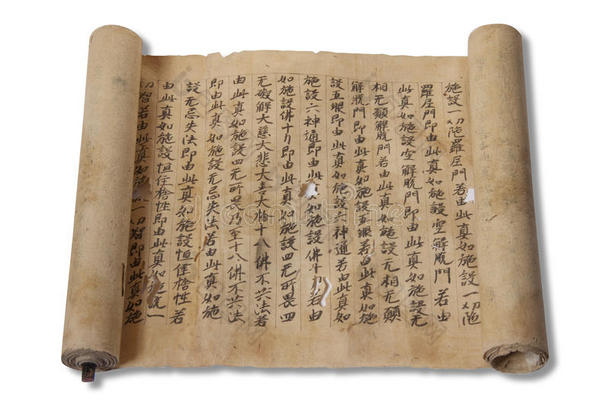 施設一切陁羅尼門若由此真如施設一切陁
羅尼門即由此真如施設空解脫門若由
此真如施設空解脫門即由此真如施設无
相无願解脫門若由此真如施設无相无願
解脫門即由此真如施設五眼若由此真如施
設五眼即由此真如施設六神通若由此真如
施設六神通即由此真如施設佛十力若由
如施設佛十力即由此真如施設四无所畏四
无礙解大慈大悲大喜大捨十八佛不共法若
由此真如施設四无所畏乃至十八佛不共法
即由此真如施設无忘失法若由此真如施
設无忘失法即由此真如施設恒住捨性若
由此真如施設恒住捨性即由此真如施設一
切智若由此真如施一切智即由此真如施